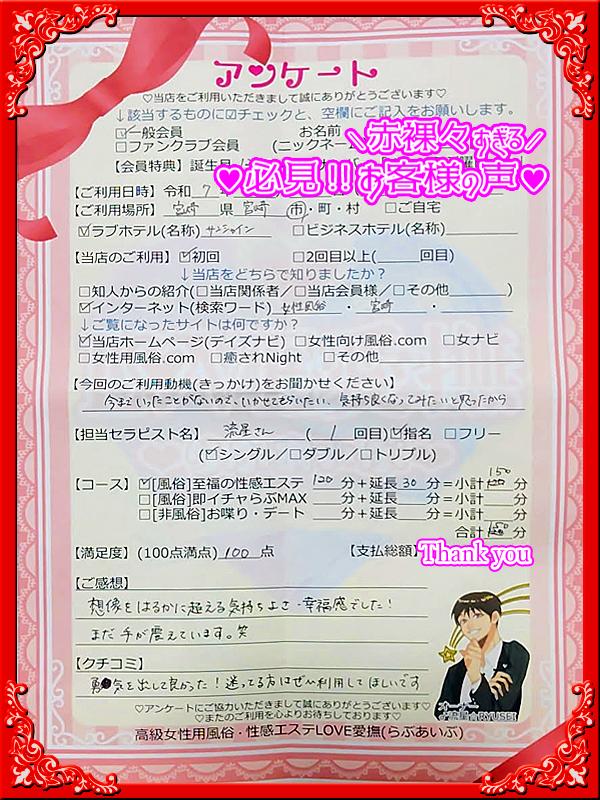 アンケート
♡当店をご利用いただきまして誠にありがとうございます♡
↓該当するものに☑チェックと、空欄にご記入をお願いします。
☑一般会員 お名前
□ファンクラブ会員 (ニックネー
\赤裸々すぎる/
♥必見!!お客様の声♥
【会員特典】誕生月
【ご利用日時】令和 7
【ご利用場所】 宮崎 県 宮崎 市・町・村 □ご自宅
☑ラブホテル(名称) サンシャイン □ビジネスホテル(名称)
【当店のご利用】 ☑初回 □2回目以上( 回目)
↓当店をどちらで知りましたか？
□知人からの紹介(□当店関係者／□当店会員様／□その他 )
☑インターネット(検索ワード) 女性風俗 ・ 宮崎 ・
↓ご覧になったサイトは何ですか？
☑当店ホームページ(デイズナビ) □女性向け風俗.com □女ナビ
□女性用風俗.com □癒されNight □その他
【今回のご利用動機(きっかけ)をお聞かせください】
今までいったことがないので、いかせてもらいたい、気持ち良くなってみたいと思ったから
【担当セラピスト名】 流星さん ( 1 回目) ☑指名 □フリー
(☑シングル／□ダブル／□トリプル)
【コース】 ☑[風俗]至福の性感エステ 120 分＋延長 30 分＝小計 150 分
□[風俗]即イチャらぶMAX 分＋延長 分＝小計 分
□[非風俗]お喋り・デート 分＋延長 分＝小計 分
合計 150 分
【満足度】(100点満点) 100 点 【支払総額】 Thank you
【ご感想】
想像をはるかに超える気持ちよさ・幸福感でした！
まだ手が震えています。笑
【クチコミ】
勇気を出して良かった！迷ってる方はぜひ利用してほしいです
オーナー
流星★RYUSEI
♡アンケートにご協力いただきまして誠にありがとうございます♡
♡またのご利用を心よりお待ちしております♡
高級女性用風俗・性感エステLOVE愛撫(らぶあいぶ)